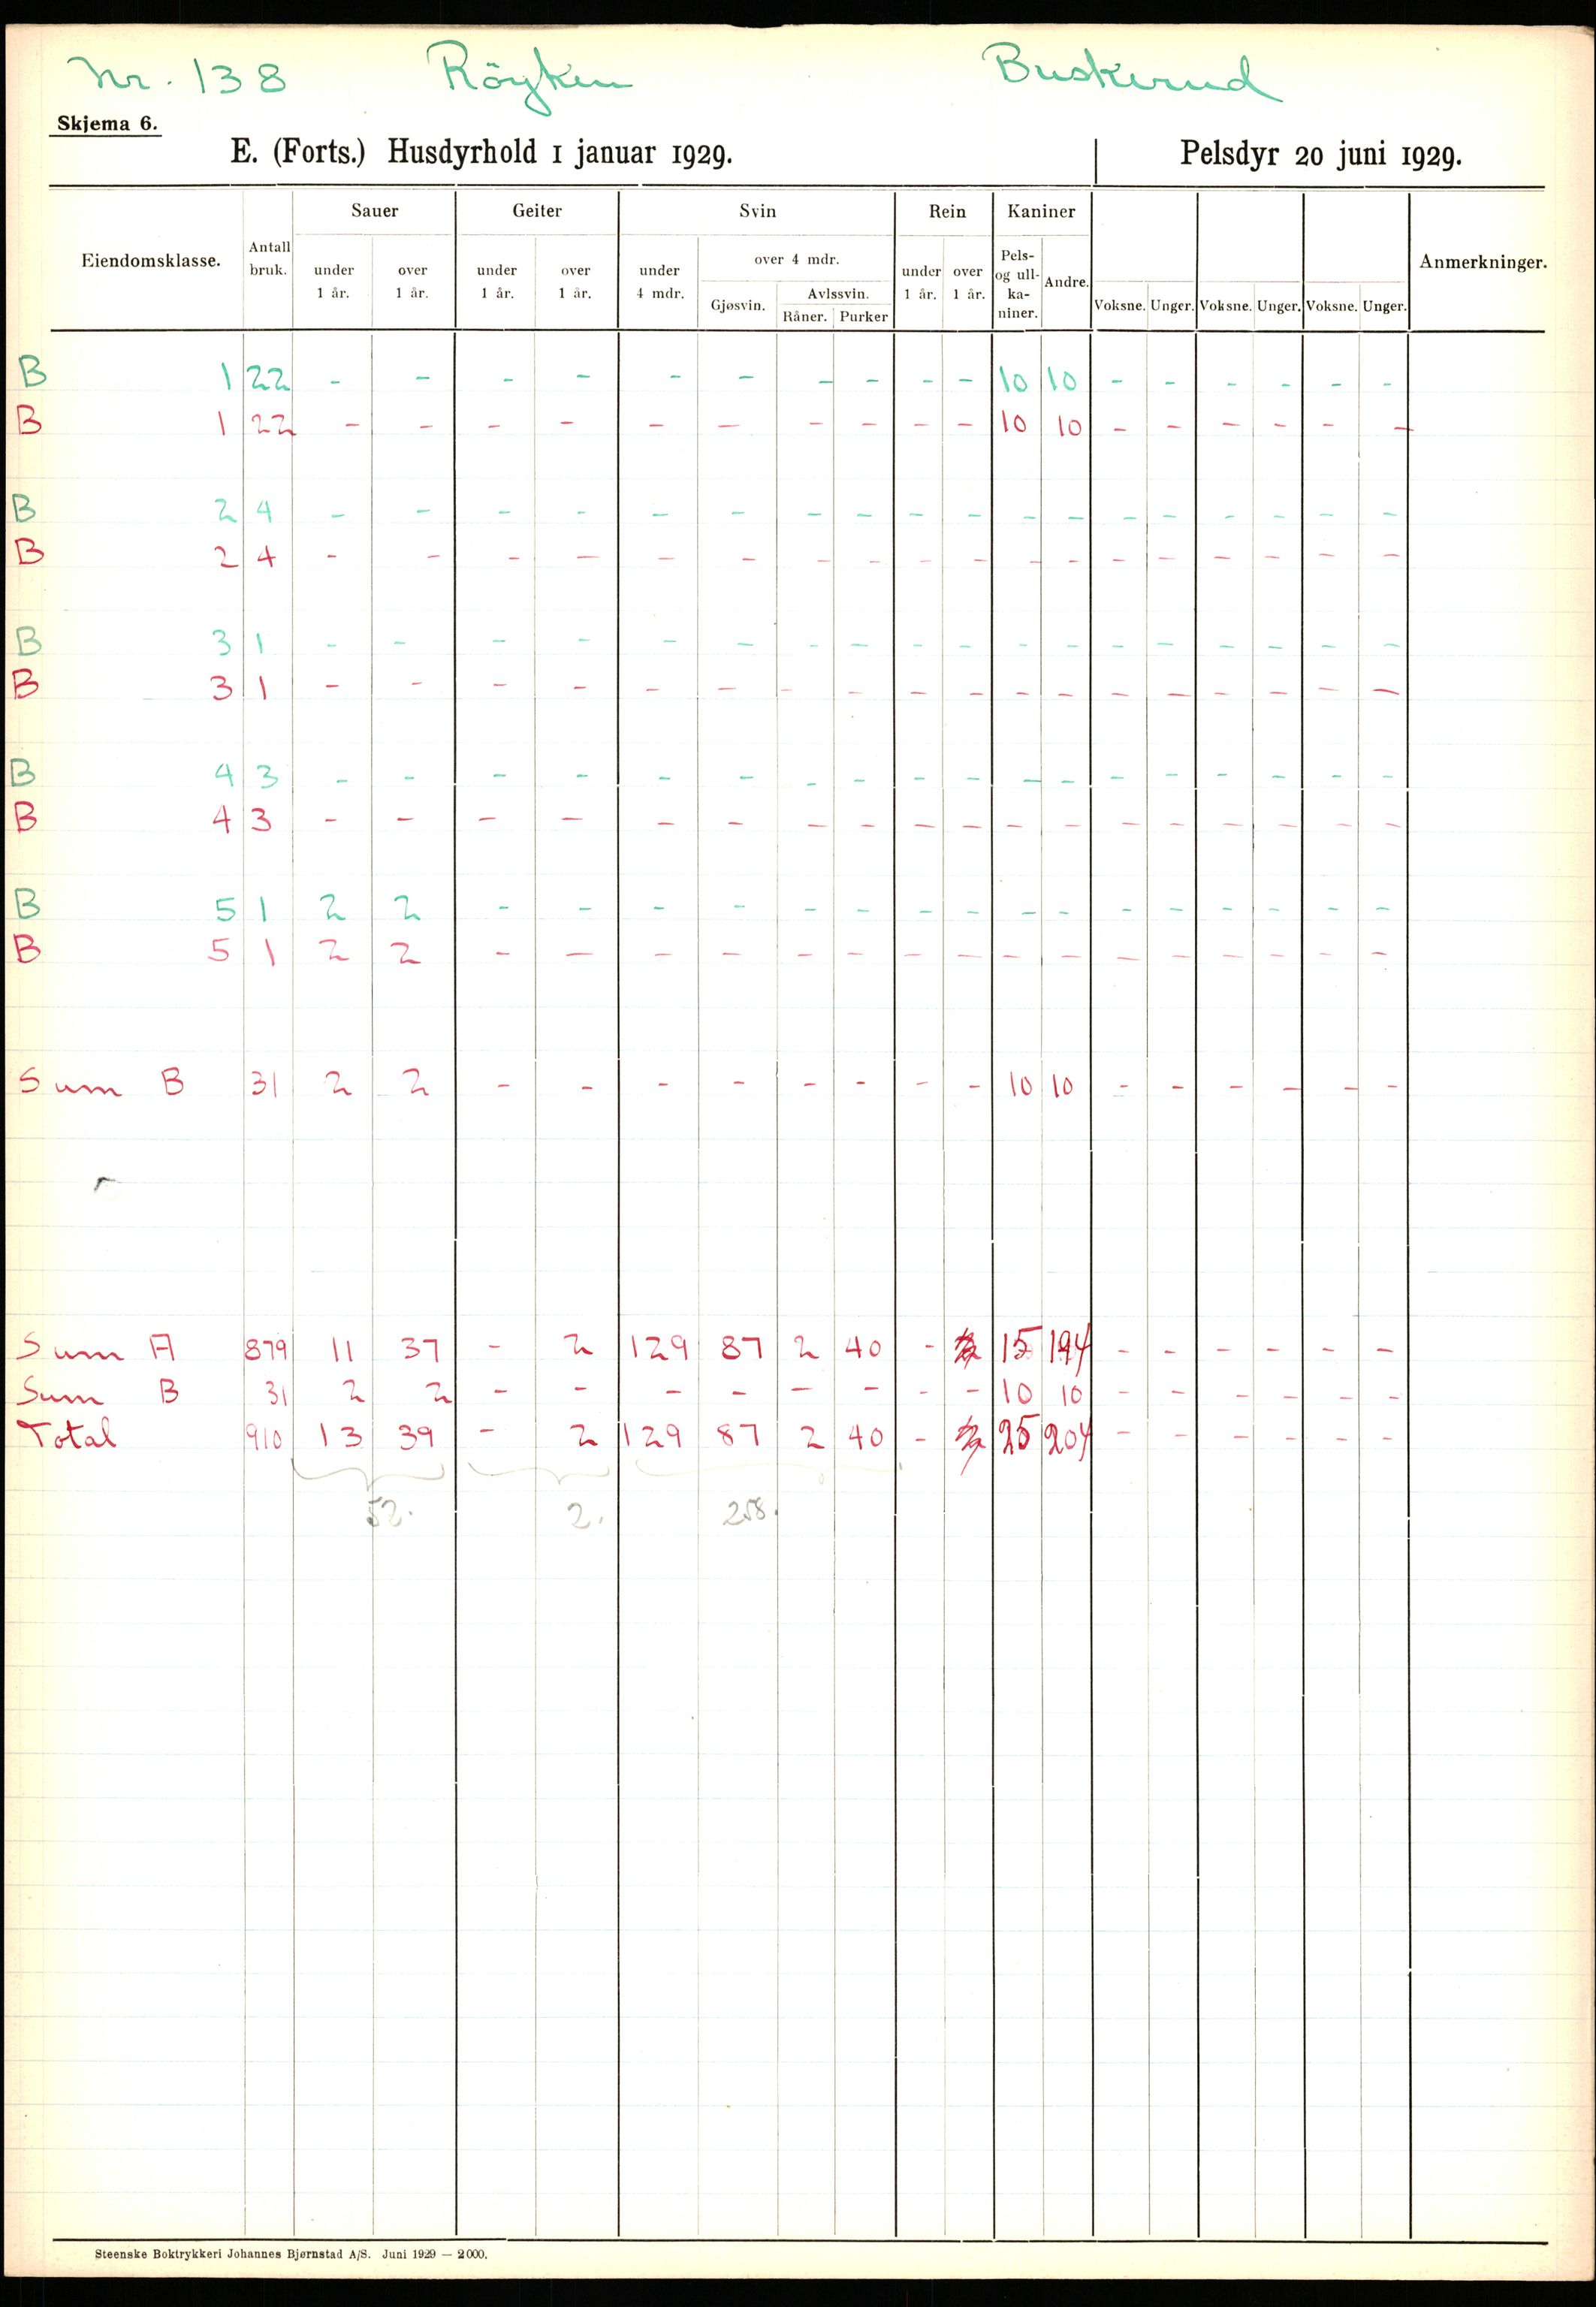 Nr. 138 Röyken Buskerud
Skjema 6.
E. (Forts.) Husdyrhold 1 januar 1929. Pelsdyr 20 juni 1929.
Eiendomsklasse. Antall bruk. Sauer Geiter Svin Rein Kaniner Anmerkninger.
under 1 år. over 1 år. under 1 år. over 1 år. under 4 mdr. over 4 mdr. Gjøsvin. Avlssvin. Råner. Purker under 1 år. over 1 år. Pels- og ull- ka- niner. Andre. Voksne. Unger. Voksne. Unger. Voksne. Unger.
B 1 22 - - - - - - - - - - 10 10 - - - - - -
B 1 22 - - - - - - - - - - 10 10 - - - - - -
B 2 4 - - - - - - - - - - - - - - - - - -
B 2 4 - - - - - - - - - - - - - - - - - -
B 3 1 - - - - - - - - - - - - - - - - - -
B 3 1 - - - - - - - - - - - - - - - - - -
B 4 3 - - - - - - - - - - - - - - - - - -
B 4 3 - - - - - - - - - - - - - - - - - -
B 5 1 2 2 - - - - - - - - - - - - - - - -
B 5 1 2 2 - - - - - - - - - - - - - - - -
Sum B 31 2 2 - - - - - - - - 10 10 - - - - - -
Sum A 879 11 37 - 2 129 87 2 40 - 15 194 - - - - - -
Sum B 31 2 2 - - - - - - - - 10 10 - - - - - -
Total 910 13 39 - 2 129 87 2 40 - 25 204 - - - - - -
52. 2. 258.
Steenske Boktrykkeri Johannes Bjørnstad A/S. Juni 1929 — 2000.